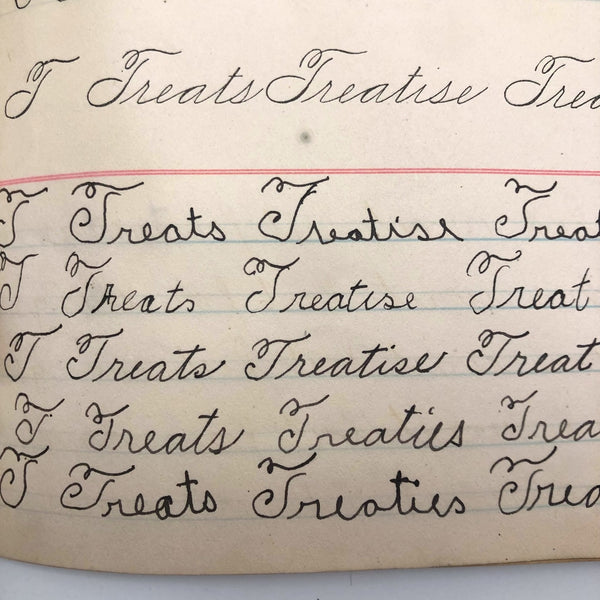 T Treats Treatise Trea
T Treats Treatise Treat
T Treats Treatise Treat
T Treats Treatise Treat
T Treats Treaties Trea
T Treats Treaties Trea